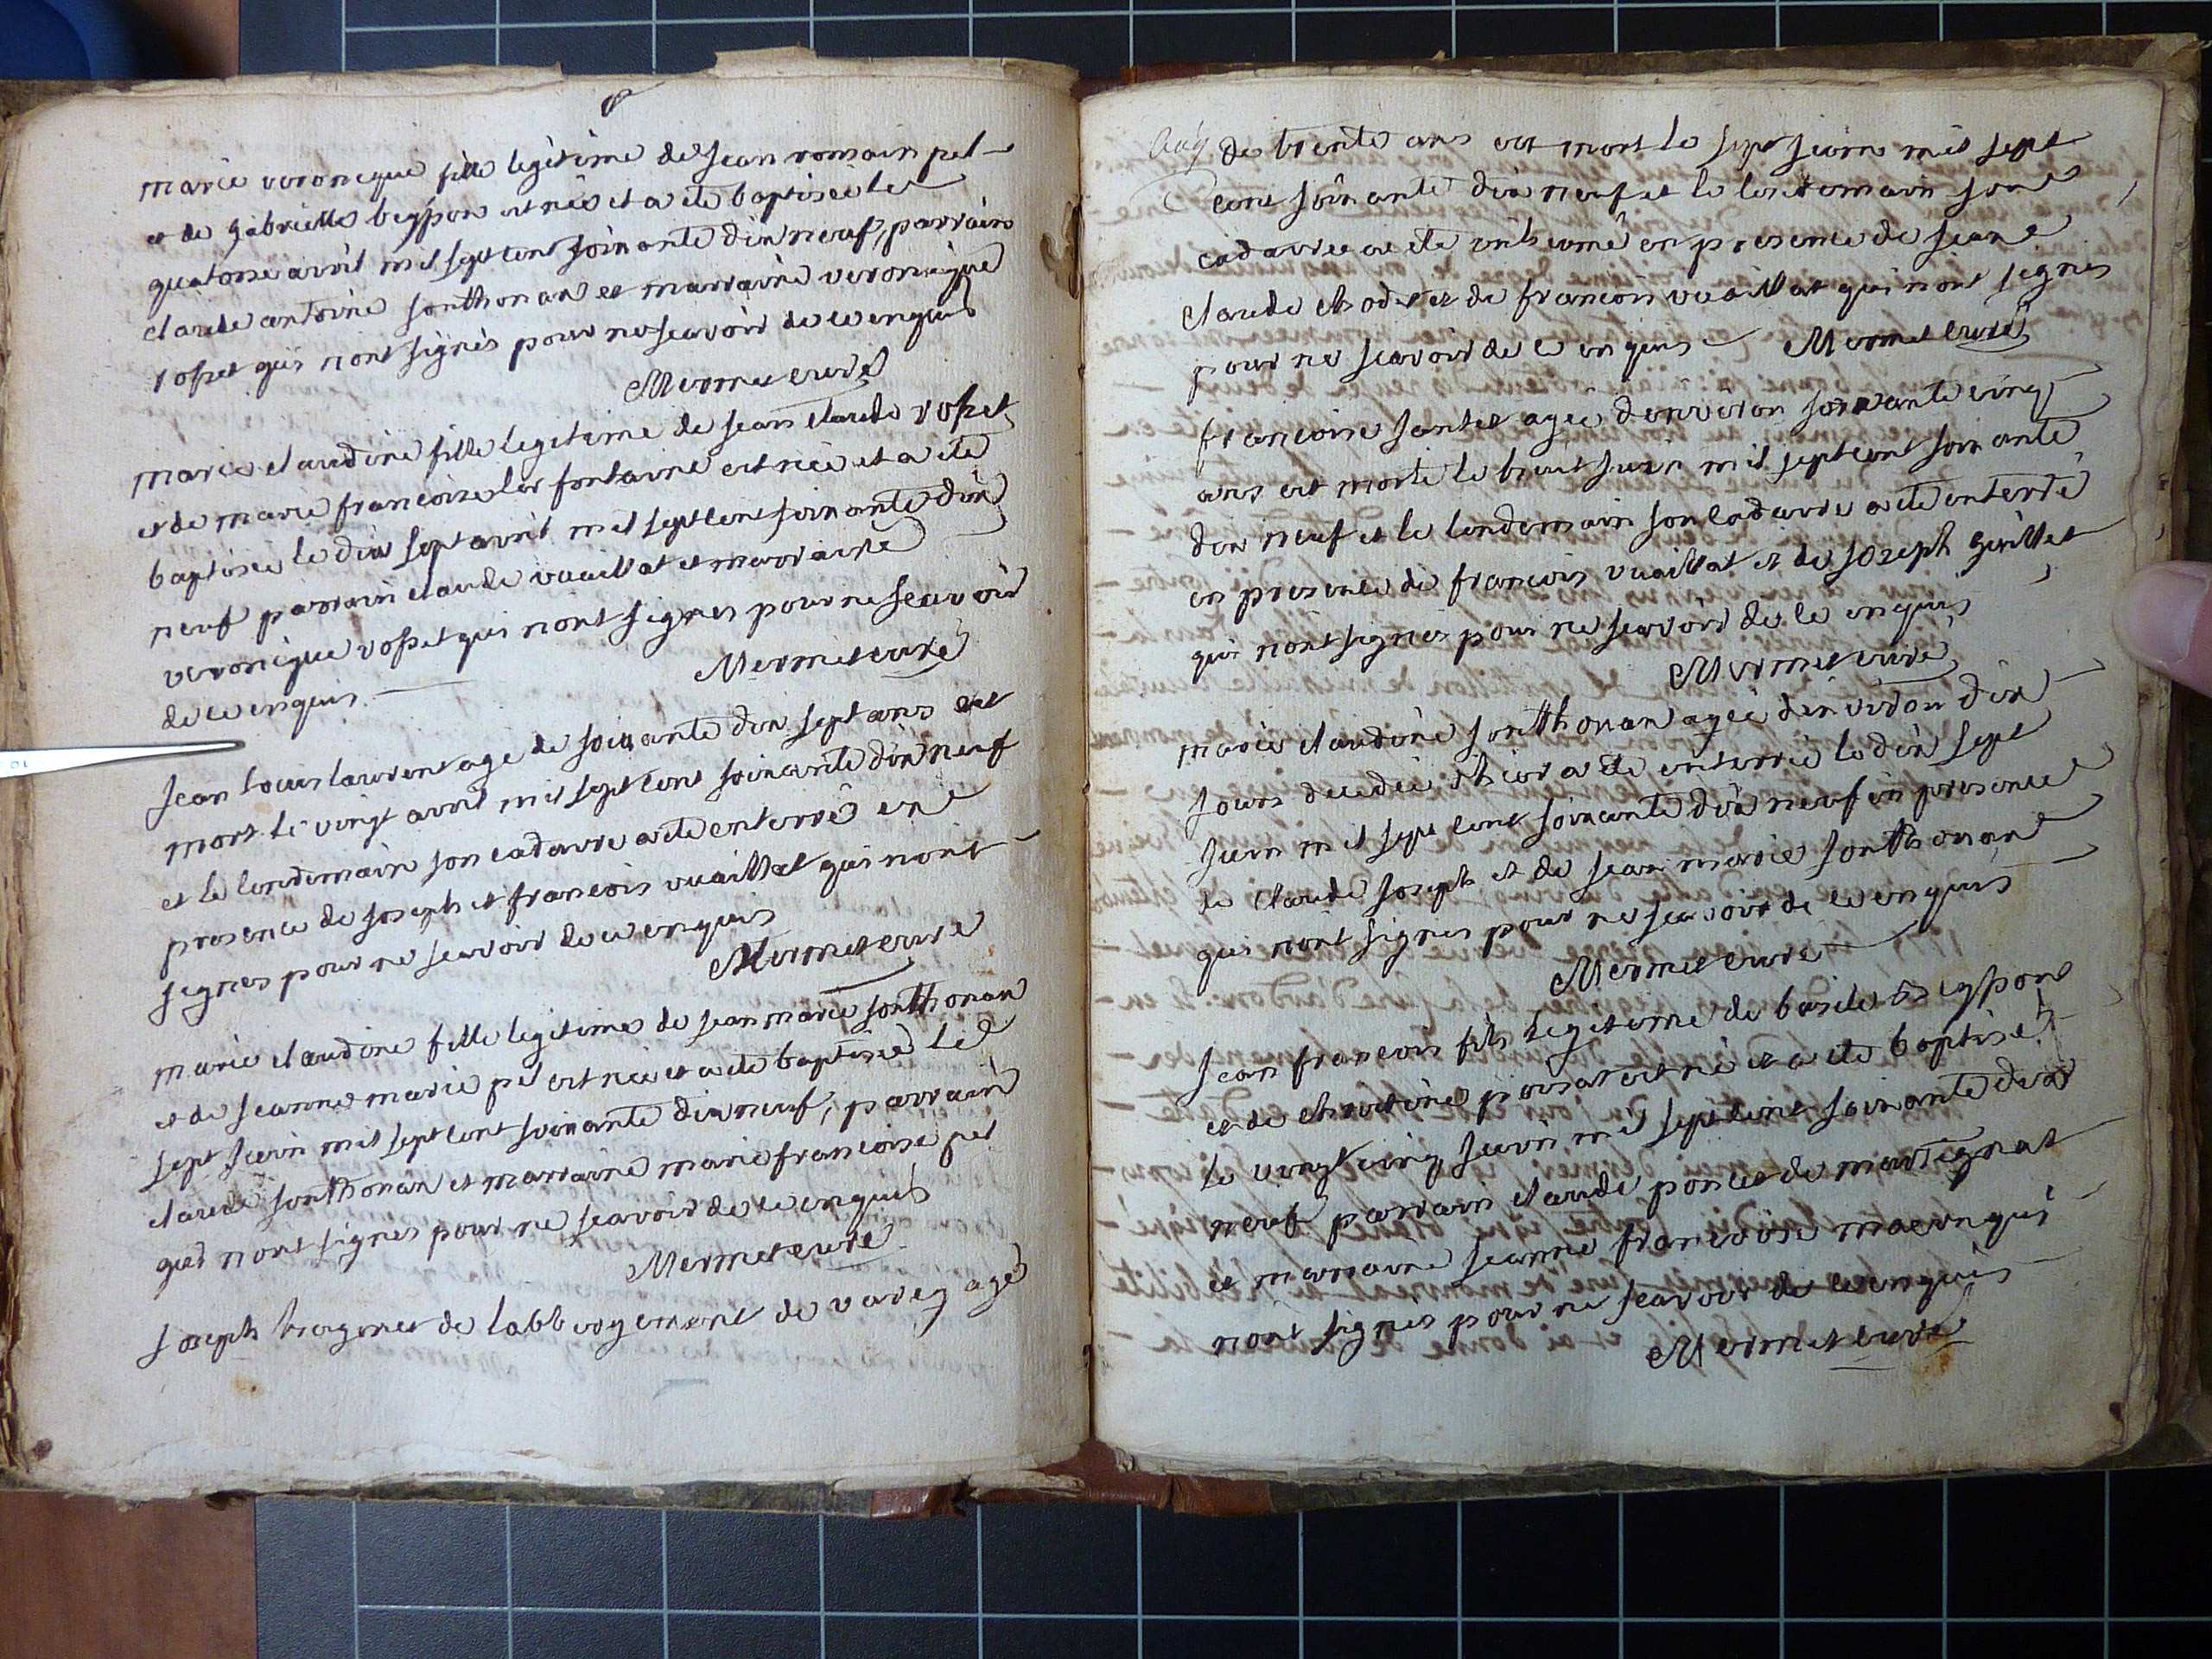 marie veronique fille legitime de Jean romain pel
et de gabrielle beysson est née et a ete baptisée le
quatorse avril mil sept cent soixante dix neuf, parrain
claude antoine sonthonax et marraine veronique
vosset qui nont signés pour ne scavoir de ce enquis
Mermet curé
marie claudine fille legitime de jean claude vosset
et de marie francoise lafontaine est née et a ete
baptisée le dix sept avril mil sept cent soixante dix
neuf parrain claude vuaillat et marraine
veronique vosset qui nont signes pour ne scavoir
de ce enquis
Mermet curé
Jean Louis laurent age de soixante dix sept ans est
mort le vingt avril mil sept cent soixante dix neuf
et le lendemain son cadavre a ete enterré en
presence de joseph et francois vuaillat qui nont
signes pour ne scavoir de ce enquis
Mermet curé
marie claudine fille legitime de jean marie sonthonax
et de jeanne marie pel est née et a ete baptisée le
sept juin mil sept cent soixante dix neuf, parrain
claude sonthonax et marraine marie francoise pel
qui nont signes pour ne scavoir de ce enquis
Mermet curé
Joseph de labbergement de varey age
de trente ans est mort le sept juin mil sept
cent soixante dix neuf et le lendemain son
cadavre a ete enterré en presence de jean
claude et de francois vuaillat qui nont signes
pour ne scavoir de ce enquis Mermet curé
francoise jantet agée denviron soixante cinq
ans est morte le huit juin mil sept cent soixante
dix neuf et le lendemain son cadavre a ete enterré
en presence de francois vuaillat et de joseph guillet
qui nont signés pour ne scavoir de ce enquis
Mermet curé
marie claudine sonthonax agée denviron dix
jours decedée hier a ete enterrée le dix sept
juin mil sept cent soixante dix neuf en presence
de claude joseph et de jean marie sonthonax
qui nont signes pour ne scavoir de ce enquis
Mermet curé
Jean francois fils legitime de basile beyssont
et de claudine est né et a ete baptisé
le vingt cinq juin mil sept cent soixante dix
neuf parrain claude poncet de martignat
et marraine jeanne francoise qui
nont signés pour ne scavoir de ce enquis
Mermet curé